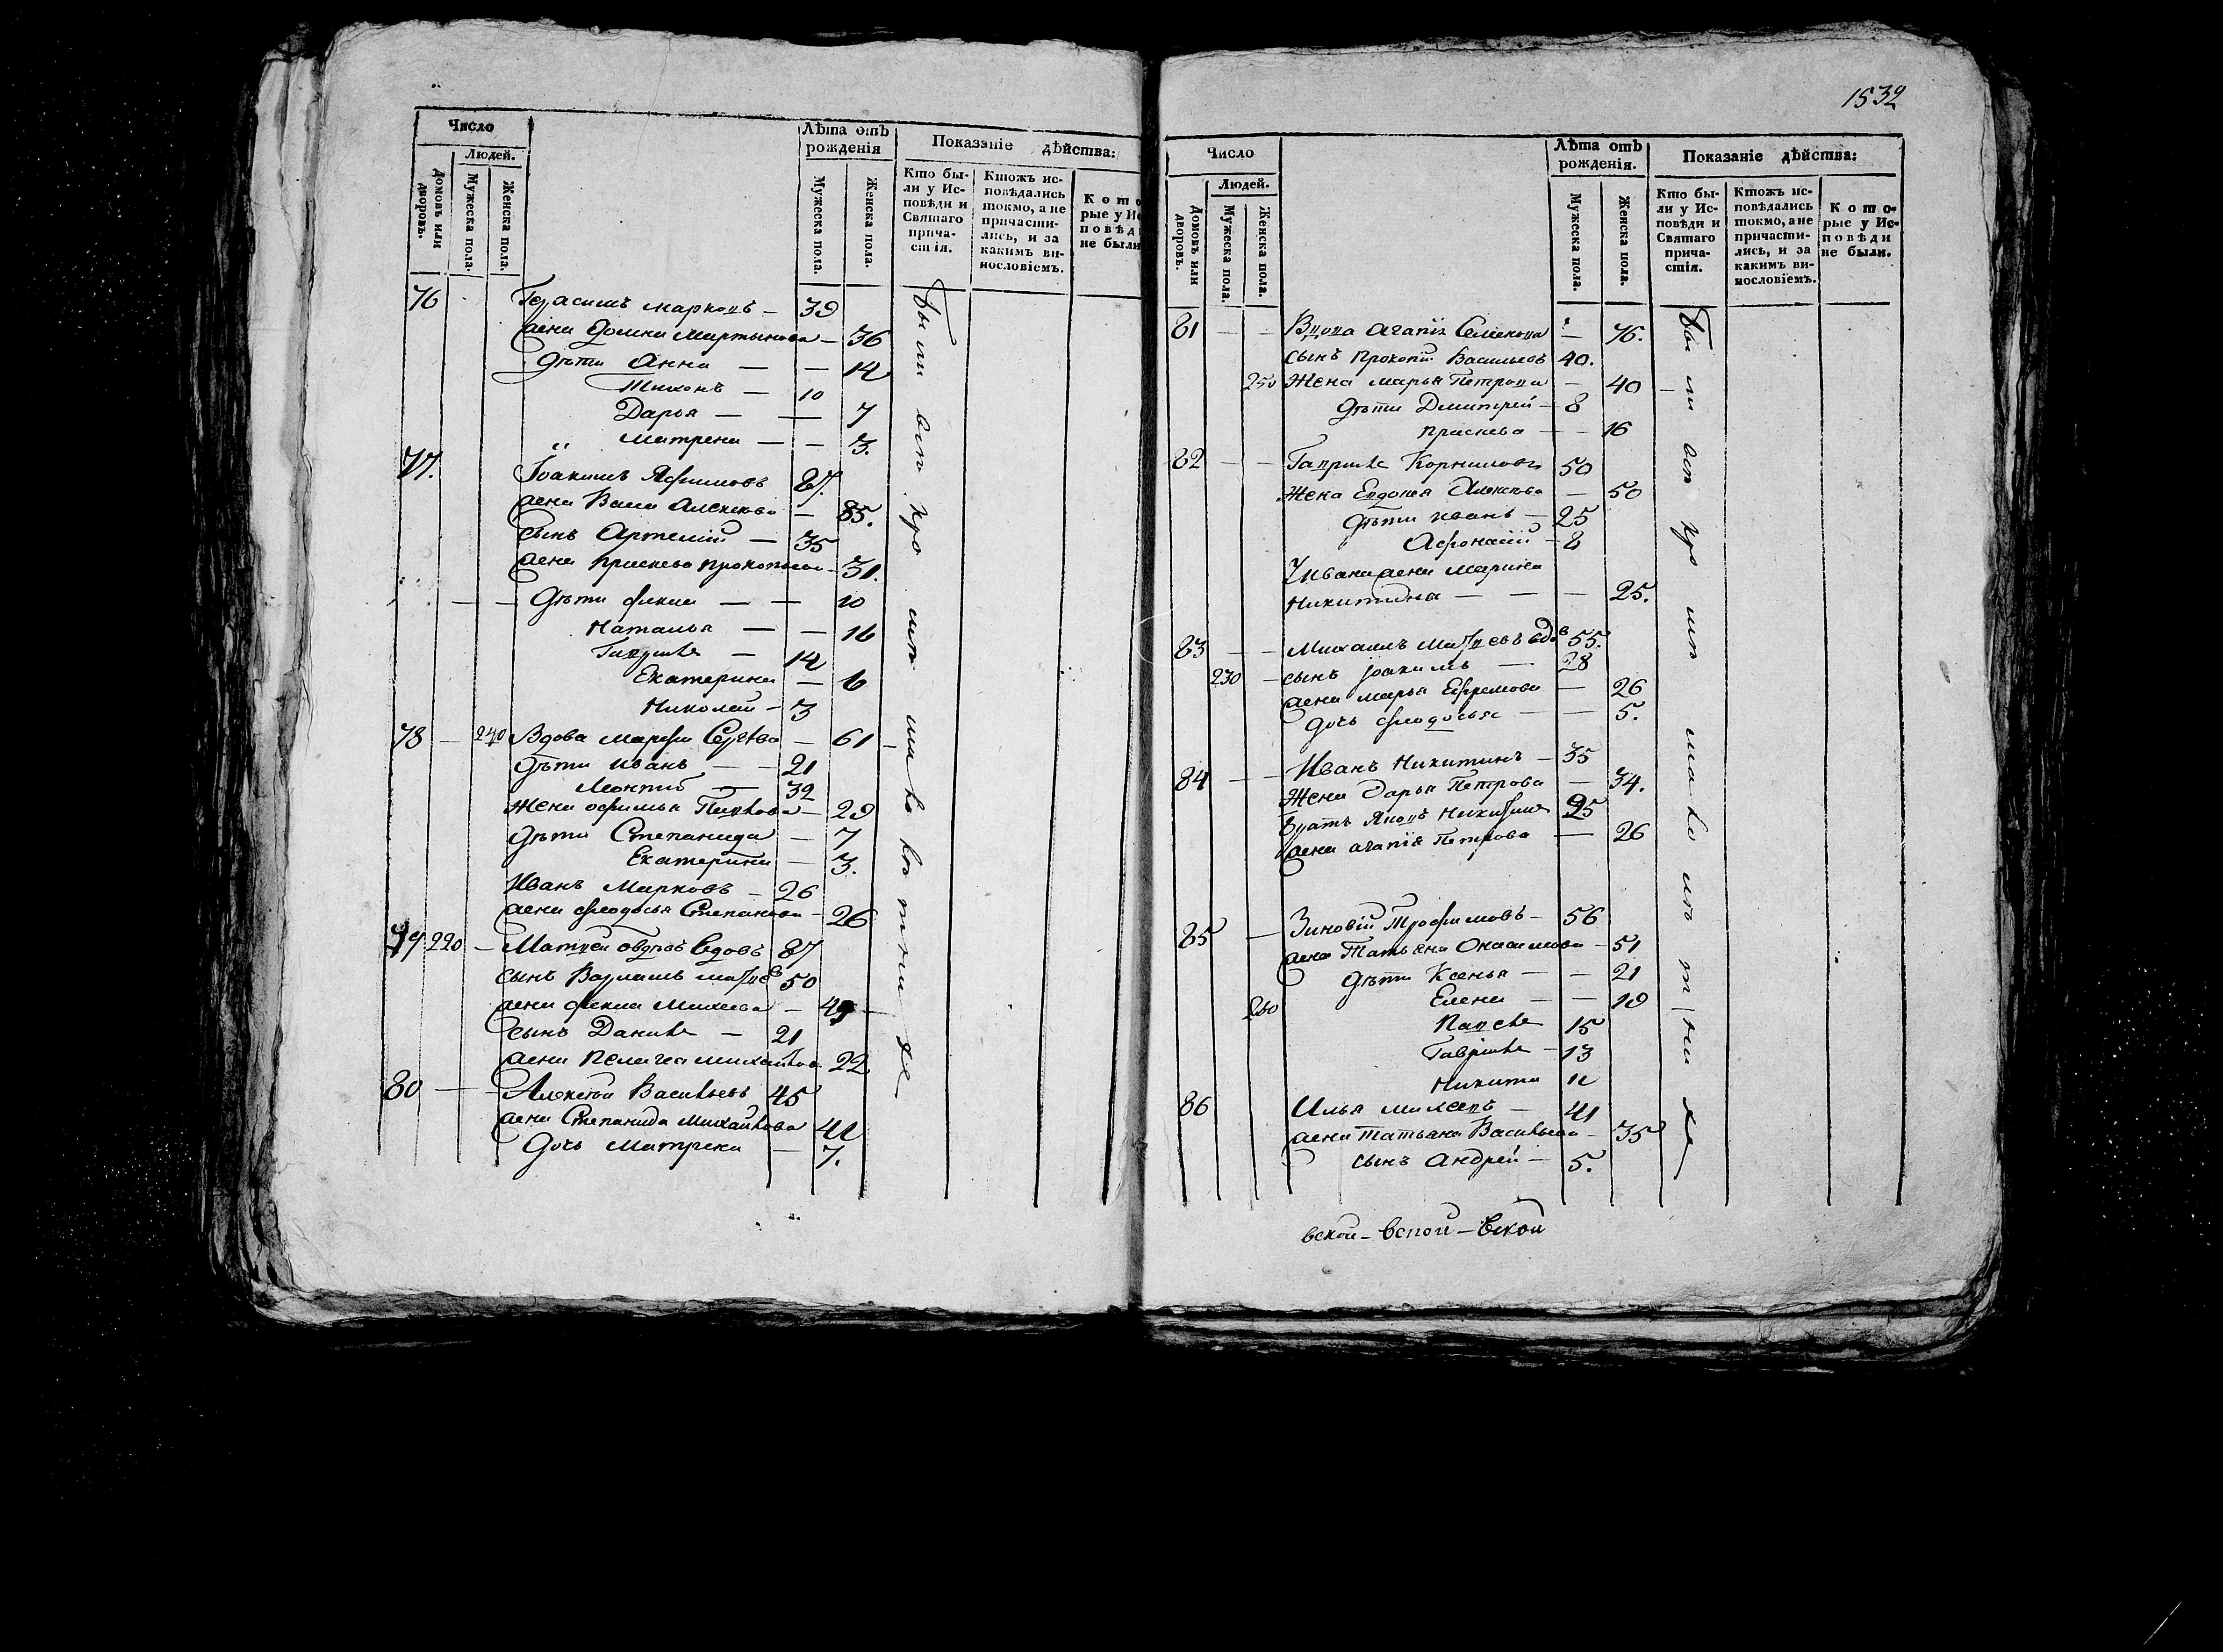 Число
Людей.
Домовъ или дворовъ.
Мужеска пола.
Женска пола.
Лѣта отъ рожденія
Мужеска пола.
Женска пола.
Показаніе дѣйства:
Кто бы-
ли у Ис-
повѣди и
Святаго
прича-
стія.
Ктожъ ис-
повѣдались
токмо, а не
причасти-
лись, и за
какимъ ви-
нословіемъ.
К о т о
рые у Ис
п о в ѣ д
не были
76 Герасимъ Марковъ — 39
жена Домна Мартынова — 36
дѣти Анна — — 14
Тихонъ — 10
Дарья — — 7
Матрена — — 3.
77. Іоакимъ 87.
жена Алексѣева — 85.
сынъ Артемій — 35
жена Праскева Прокопьева — 31.
дѣти Фекла — — 20
Наталья — — 16
Гаврила — 14
Екатерина — 6
Николай — 3
78 — 240 Вдова Марфа — 61 —
дѣти Иванъ — — 21
Леонтій — 32
жена Офимья — 29
дѣти Степанида — 7
Екатерина — 3.
Иванъ Марковъ — 26
жена Феодосья Степанова — 26
79 220 — Матвей вдовъ 87
сынъ 50
жена Фекла Михеева — 49 —
сынъ Данила — 21
жена Пелагея 22
80 — — Алексѣй Васильевъ 45
жена Степанида Михайлова 41
дочь Матрена — 7.
1532
Число
Людей.
Домовъ или дворовъ.
Мужеска пола.
Женска пола.
Лѣта отъ рожденія.
Мужеска пола.
Женска пола.
Показаніе дѣйства:
Кто бы-
ли у Ис-
повѣди и
Святаго
прича-
стія.
Ктожъ ис-
повѣдались
токмо, а не
причасти-
лись, и за
какимъ ви-
нословіемъ.
К о т о-
рые у Ис-
п о в ѣ д и
не были.
81 — — Вдова Агапія Семенова — 76.
сынъ Прокопій Васильевъ 40.
250 Жена Марья Петрова — 40 —
дѣти Дмитрей — 8
Праскева — — 16
82 — — Гаврила Корниловъ 50
Жена Евдокея Алексѣева — 50
дѣти Иванъ — 25
Афонасій — 8
У Ивана жена Марина
Никитина — — — 25.
83 — — Михаилъ 55.
230 — сынъ Іоакимъ — 28
жена Марья Ефремова — 26
дочь Феодосья — — 5.
84 — — Иванъ Никитинъ — 35
Жена Дарья Петрова — 34.
Братъ 25
жена Агапія Петрова — 26
85 — Зиновій Трофимовъ — 56
жена Татьяна — 51
дѣти Ксенья — — 21
260 Елена — — 19
Павелъ 15
Гаврила — 13
Никита 12
86 Илья — 41
жена Татьяна Васильева — 35
сынъ Андрей — 5.
вской — вской — вской